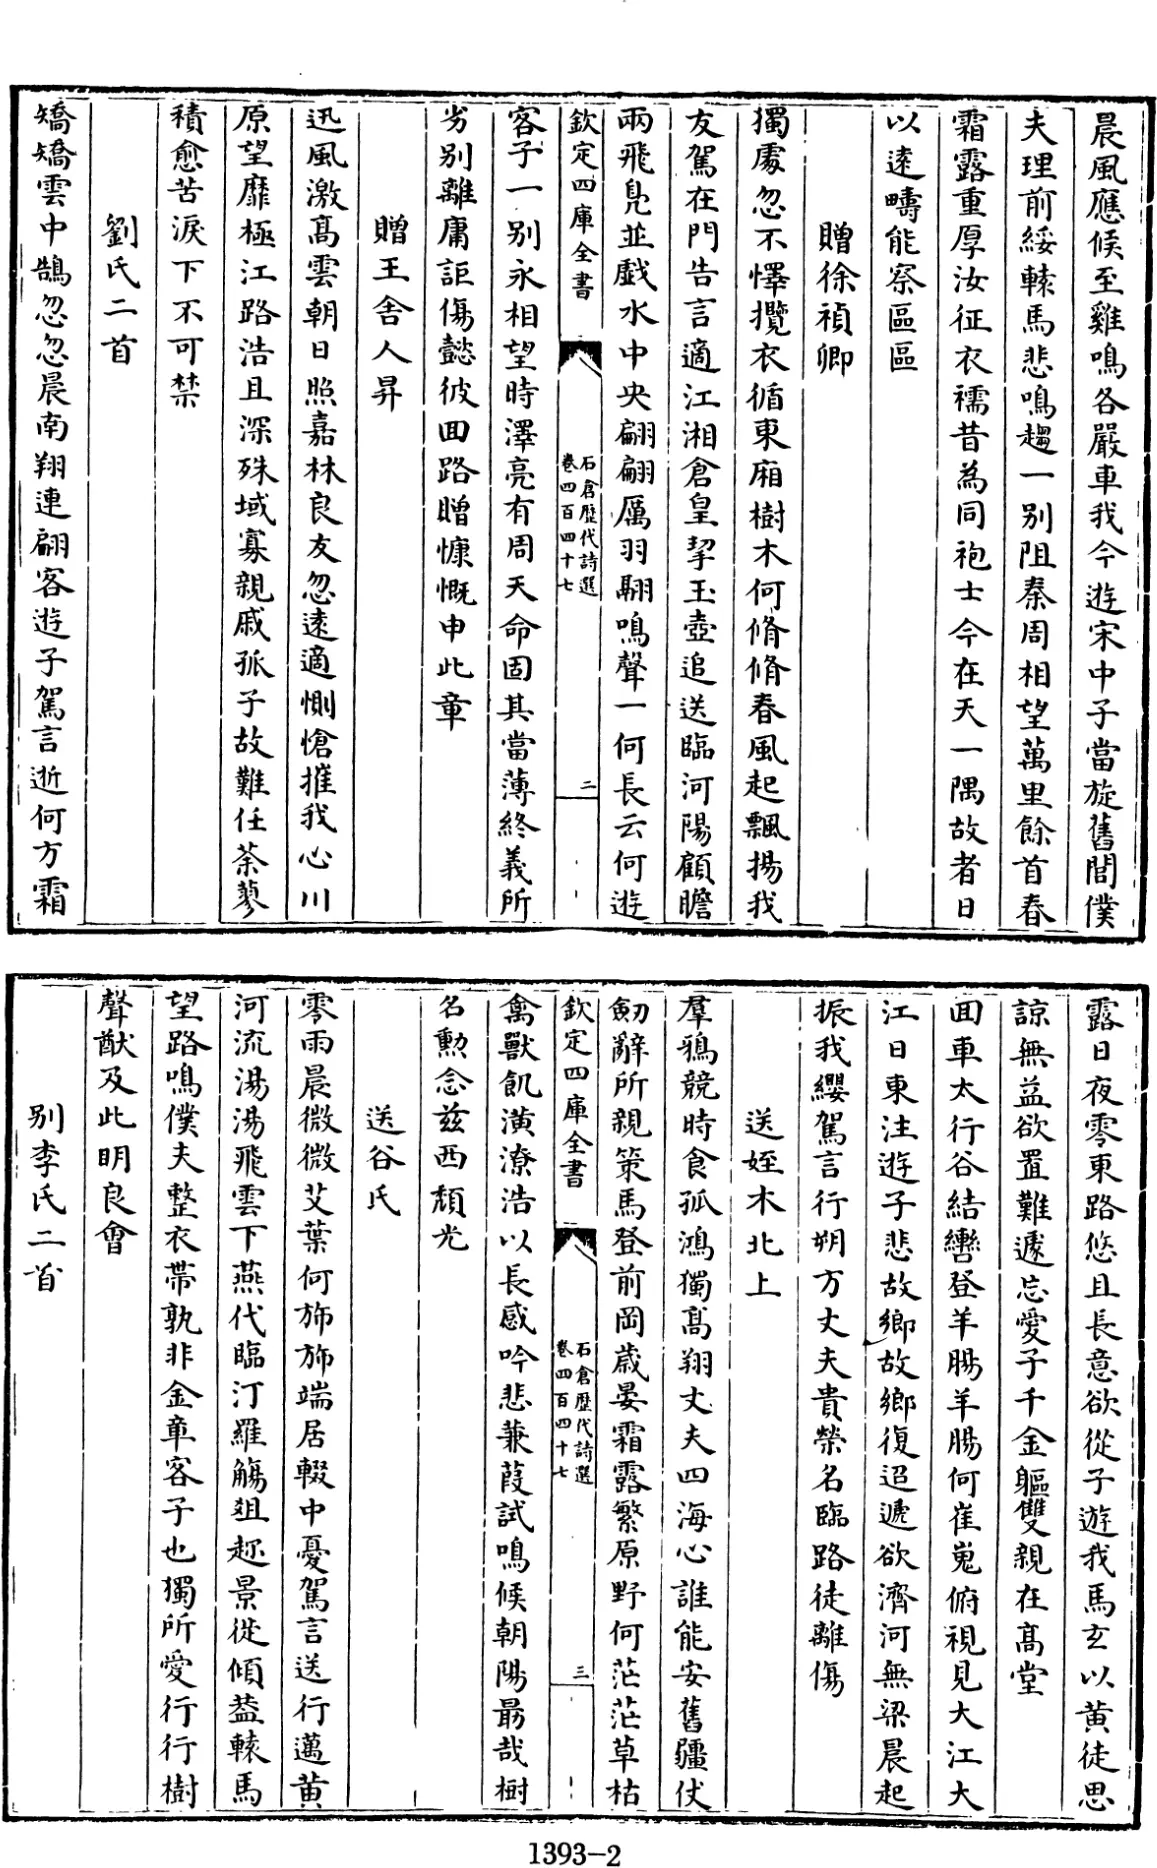 晨風應候至雞鳴各嚴車我今遊宋中子當旋舊閭僕
夫理前綏轅馬悲鳴趨一别阻秦周相望萬里餘首春
霜露重厚汝征衣襦昔為同袍士今在天一隅故者日
以遠疇能察區區
贈徐禎卿
獨處忽不懌攬衣循東廂樹木何脩脩春風起飄揚我
友駕在門告言適江湘倉皇挈玉壺追送臨河陽顧瞻
兩飛鳧並戲水中央翩翩厲羽翮鳴聲一何長云何遊
欽定四庫全書
石倉歷代詩選
卷四百四十七
二
客子一别永相望時澤亮有周天命固其當薄終義所
劣别離庸詎傷懿彼回路贈慷慨申此章
贈王舍人昇
迅風激高雲朝日照嘉林良友忽遠適惻愴摧我心川
原望靡極江路浩且深殊域寡親戚孤子故難任荼蓼
積愈苦淚下不可禁
劉氏二首
矯矯雲中鵠忽忽晨南翔連翩客遊子駕言逝何方霜
露日夜零東路悠且長意欲從子遊我馬玄以黄徒思
諒無益欲置難遽忘愛子千金軀雙親在髙堂
回車太行谷結轡登羊腸羊腸何崔嵬俯視見大江大
江日東注遊子悲故鄉故鄉復迢遞欲濟河無梁晨起
振我纓駕言行朔方丈夫貴榮名臨路徒離傷
送姪木北上
羣鴉競時食孤鴻獨髙翔丈夫四海心誰能安舊疆仗
劒辭所親策馬登前岡歲晏霜露繁原野何茫茫草枯
欽定四庫全書
石倉歷代詩選
卷四百四十七
三
禽獸飢潢潦浩以長感吟悲蒹葭試鳴候朝陽勗哉樹
名勲念兹西頹光
送谷氏
零雨晨微微艾葉何斾斾端居輟中憂駕言送行邁黄
河流湯湯飛雲下燕代臨汀羅觴俎趂景從傾葢轅馬
望路鳴僕夫整衣帶孰非金章客子也獨所愛行行樹
聲猷及此明良會
别李氏二首
1393-2